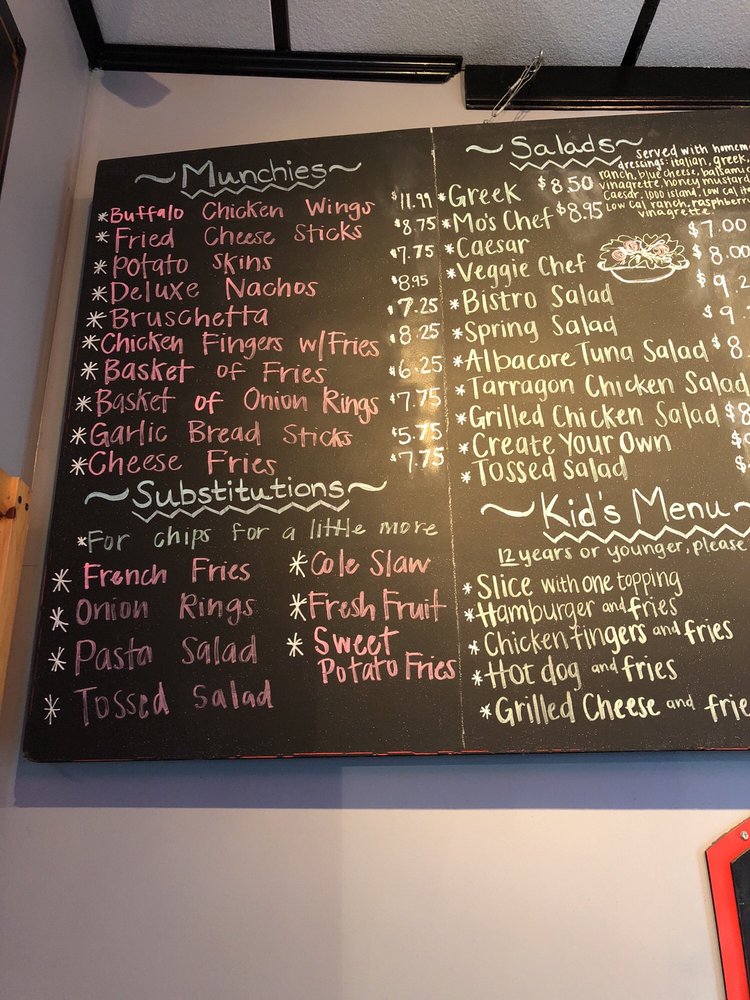 ~Munchies~
*Buffalo Chicken Wings $11.99
*Fried Cheese Sticks $8.75
*Potato Skins $7.75
*Deluxe Nachos $8.95
*Bruschetta $7.25
*Chicken Fingers w/Fries $8.25
*Basket of Fries $6.25
*Basket of Onion Rings $7.75
*Garlic Bread Sticks $5.75
*Cheese Fries $7.75
~Substitutions~
*For chips for a little more
*French Fries
*Onion Rings
*Pasta Salad
*Tossed Salad
*Cole Slaw
*Fresh Fruit
*Sweet
Potato Fries
~Salads~
served with homem
dressings: italian, greek,
ranch, blue cheese, balsam
vinagrette, honey mustard
Caesar, 1000 island, low cal it
Low cal ranch, raspberr
vinagrette.
*Greek $8.50
*Mo's Chef $8.95
*Caesar $7.00
*Veggie Chef $8.00
*Bistro Salad $9.2
*Spring Salad $9.
*Albacore Tuna Salad $8.
*Tarragon Chicken Salad
*Grilled Chicken Salad $8
*Create Your Own
*Tossed Salad
~Kid's Menu~
12 years or younger, please
*Slice with one topping
*Hamburger and fries
*Chicken fingers and fries
*Hot dog and fries
*Grilled Cheese and frie